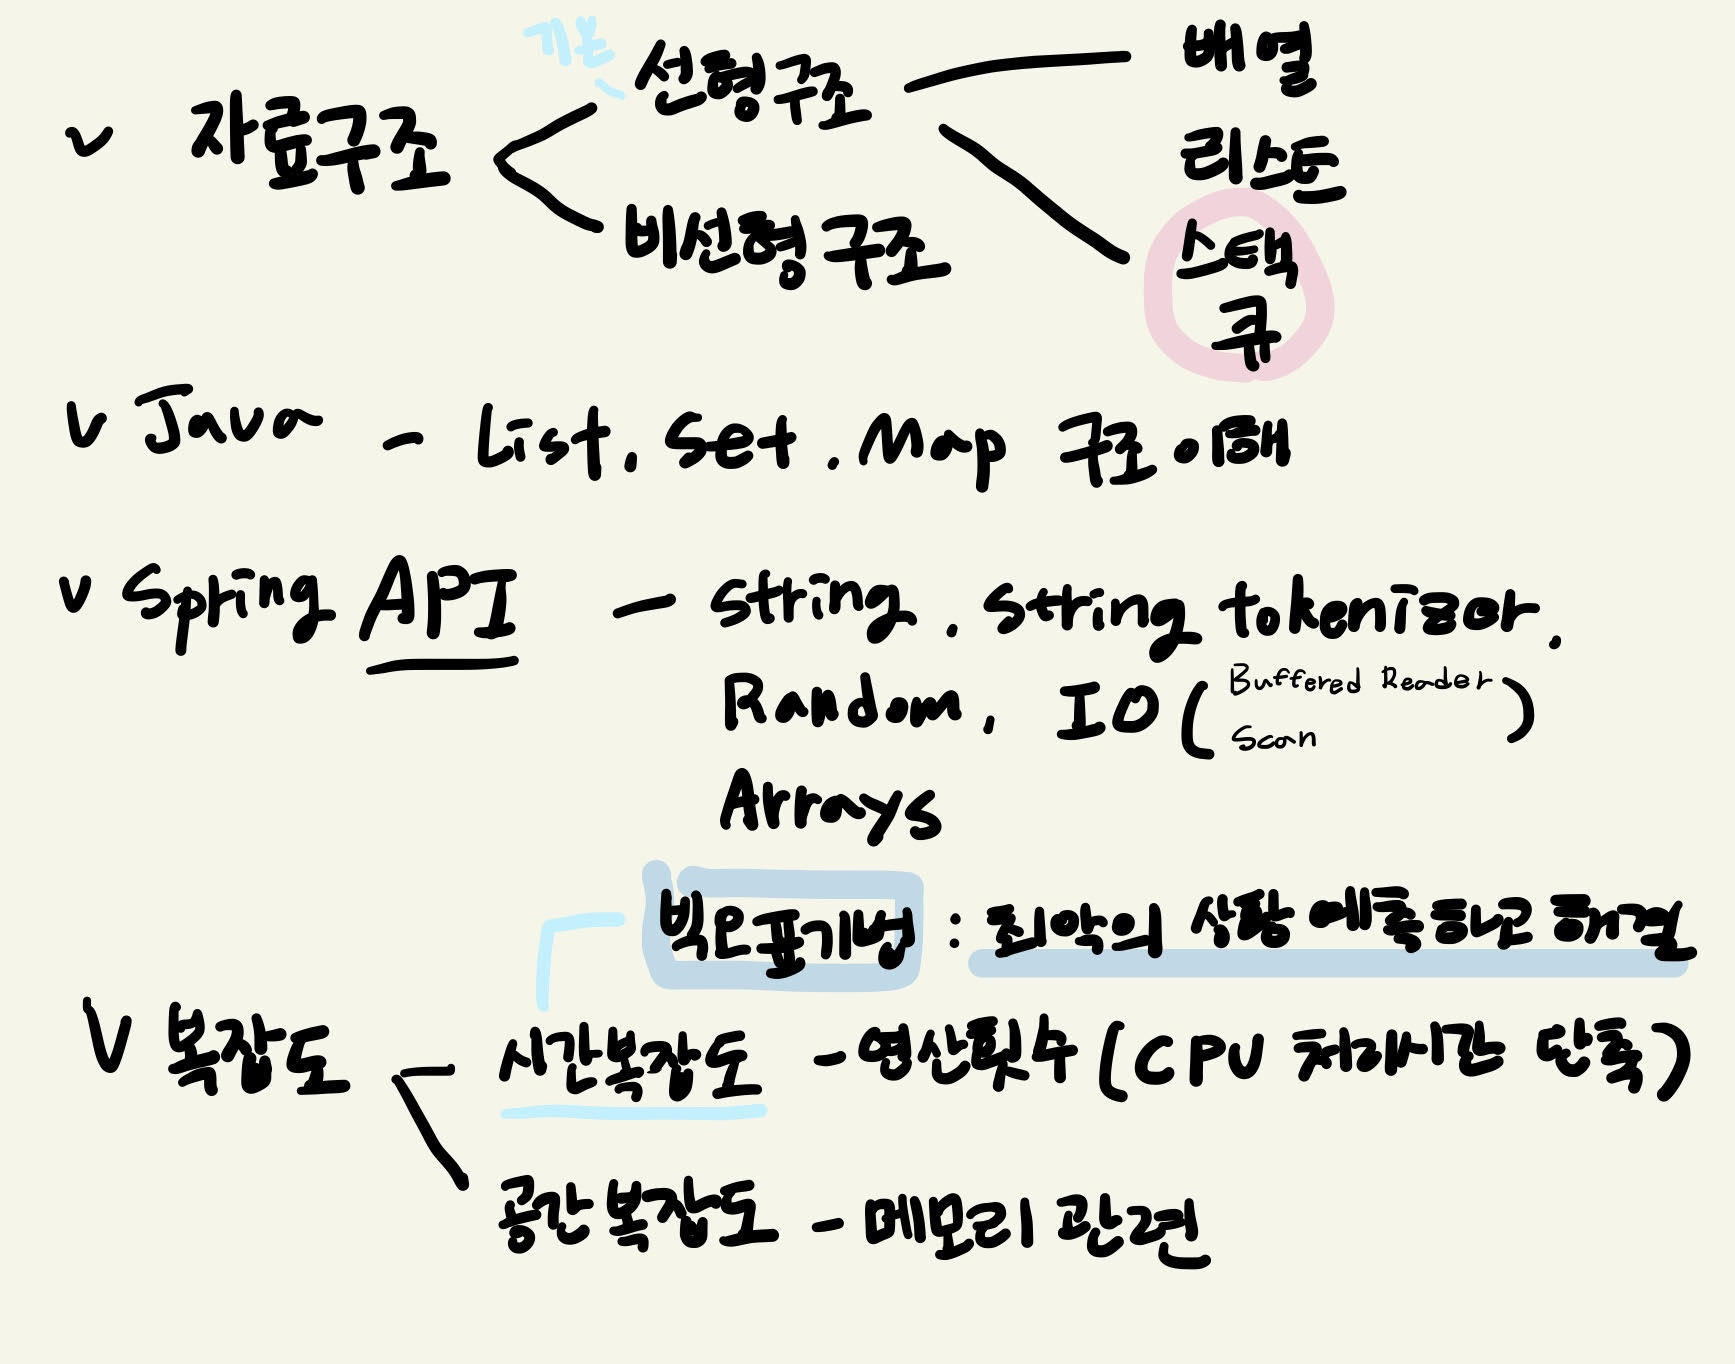 기본
선형구조
배열
v 자료구조
리스트
비선형구조
스택
큐
v Java - List, Set, Map 구조 이해
v Spring API - String, String tokenizor,
Random, IO ( Buffered Reader
Scan )
Arrays
빅오표기법 : 최악의 상황 예측하고 해결
v 복잡도
시간복잡도 - 연산횟수 (CPU 처리시간 단축)
공간복잡도 - 메모리 관련